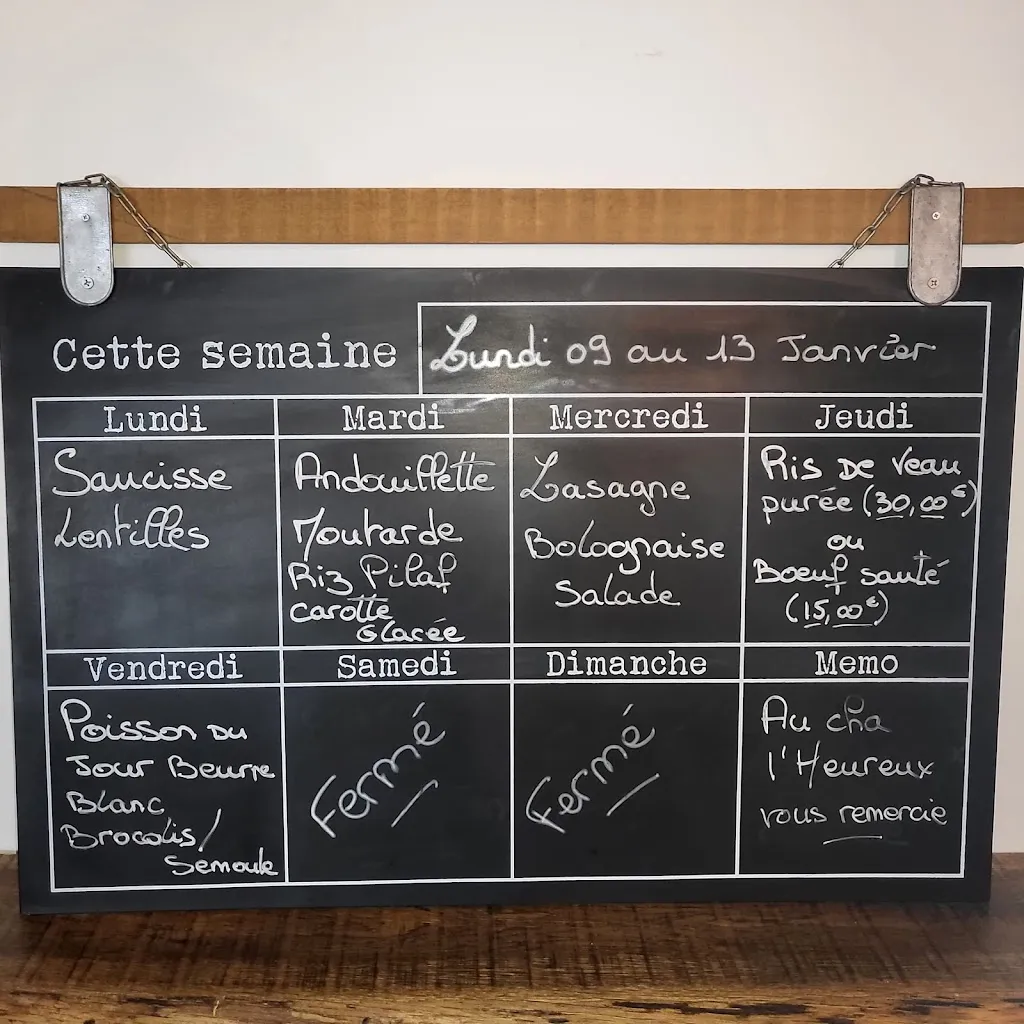 Cette semaine
Lundi 09 au 13 Janvier
Lundi
Saucisse
Lentilles
Mardi
Andouillette
Moutarde
Riz Pilaf
carotte
Glacée
Mercredi
Lasagne
Bolognaise
Salade
Jeudi
Ris de Veau
purée (30,00€)
ou
Boeuf sauté
(15,00€)
Vendredi
Poisson du
Jour Beurre
Blanc
Brocolis/
Semoule
Samedi
Fermé
Dimanche
Fermé
Memo
Au cha
l'Heureux
vous remercie